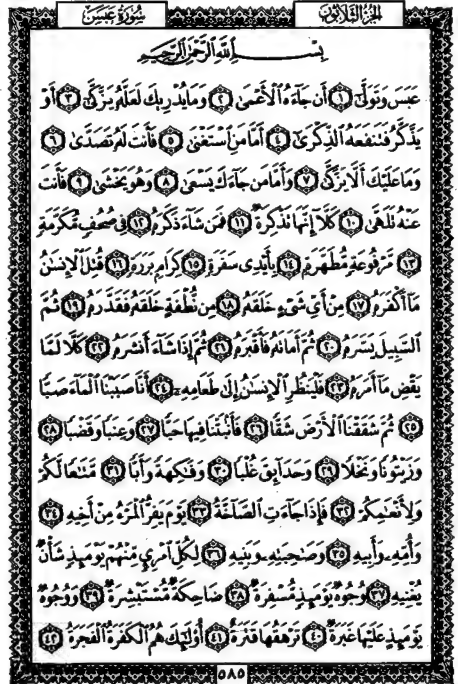 سُورَةُ عَبَسَ الجُزْءُ الثَّلَاثُونَ
بِسْمِ ٱللَّهِ ٱلرَّحْمَٰنِ ٱلرَّحِيمِ
عَبَسَ وَتَوَلَّىٰٓ ١ أَن جَآءَهُ ٱلْأَعْمَىٰ ٢ وَمَا يُدْرِيكَ لَعَلَّهُۥ يَزَّكَّىٰٓ ٣ أَوْ
يَذَّكَّرُ فَتَنفَعَهُ ٱلذِّكْرَىٰٓ ٤ أَمَّا مَنِ ٱسْتَغْنَىٰ ٥ فَأَنتَ لَهُۥ تَصَدَّىٰ ٦
وَمَا عَلَيْكَ أَلَّا يَزَّكَّىٰ ٧ وَأَمَّا مَن جَآءَكَ يَسْعَىٰ ٨ وَهُوَ يَخْشَىٰ ٩ فَأَنتَ
عَنْهُ تَلَهَّىٰ ١٠ كَلَّآ إِنَّهَا تَذْكِرَةٌ ١١ فَمَن شَآءَ ذَكَرَهُۥ ١٢ فِى صُحُفٍ مُّكَرَّمَةٍ
١٣ مَّرْفُوعَةٍ مُّطَهَّرَةٍۭ ١٤ بِأَيْدِى سَفَرَةٍ ١٥ كِرَامٍۭ بَرَرَةٍ ١٦ قُتِلَ ٱلْإِنسَٰنُ
مَآ أَكْفَرَهُۥ ١٧ مِنْ أَىِّ شَىْءٍ خَلَقَهُۥ ١٨ مِن نُّطْفَةٍ خَلَقَهُۥ فَقَدَّرَهُۥ ١٩ ثُمَّ
ٱلسَّبِيلَ يَسَّرَهُۥ ٢٠ ثُمَّ أَمَاتَهُۥ فَأَقْبَرَهُۥ ٢١ ثُمَّ إِذَا شَآءَ أَنشَرَهُۥ ٢٢ كَلَّا لَمَّا
يَقْضِ مَآ أَمَرَهُۥ ٢٣ فَلْيَنظُرِ ٱلْإِنسَٰنُ إِلَىٰ طَعَامِهِۦٓ ٢٤ أَنَّا صَبَبْنَا ٱلْمَآءَ صَبًّا
٢٥ ثُمَّ شَقَقْنَا ٱلْأَرْضَ شَقًّا ٢٦ فَأَنۢبَتْنَا فِيهَا حَبًّا ٢٧ وَعِنَبًا وَقَضْبًا ٢٨
وَزَيْتُونًا وَنَخْلًا ٢٩ وَحَدَآئِقَ غُلْبًا ٣٠ وَفَٰكِهَةً وَأَبًّا ٣١ مَّتَٰعًا لَّكُمْ
وَلِأَنْعَٰمِكُمْ ٣٢ فَإِذَا جَآءَتِ ٱلصَّآخَّةُ ٣٣ يَوْمَ يَفِرُّ ٱلْمَرْءُ مِنْ أَخِيهِ ٣٤
وَأُمِّهِۦ وَأَبِيهِ ٣٥ وَصَٰحِبَتِهِۦ وَبَنِيهِ ٣٦ لِكُلِّ ٱمْرِئٍ مِّنْهُمْ يَوْمَئِذٍ شَأْنٌ
يُغْنِيهِ ٣٧ وُجُوهٌ يَوْمَئِذٍ مُّسْفِرَةٌ ٣٨ ضَاحِكَةٌ مُّسْتَبْشِرَةٌ ٣٩ وَوُجُوهٌ
يَوْمَئِذٍ عَلَيْهَا غَبَرَةٌ ٤٠ تَرْهَقُهَا قَتَرَةٌ ٤١ أُو۟لَٰٓئِكَ هُمُ ٱلْكَفَرَةُ ٱلْفَجَرَةُ ٤٢
٥٨٥